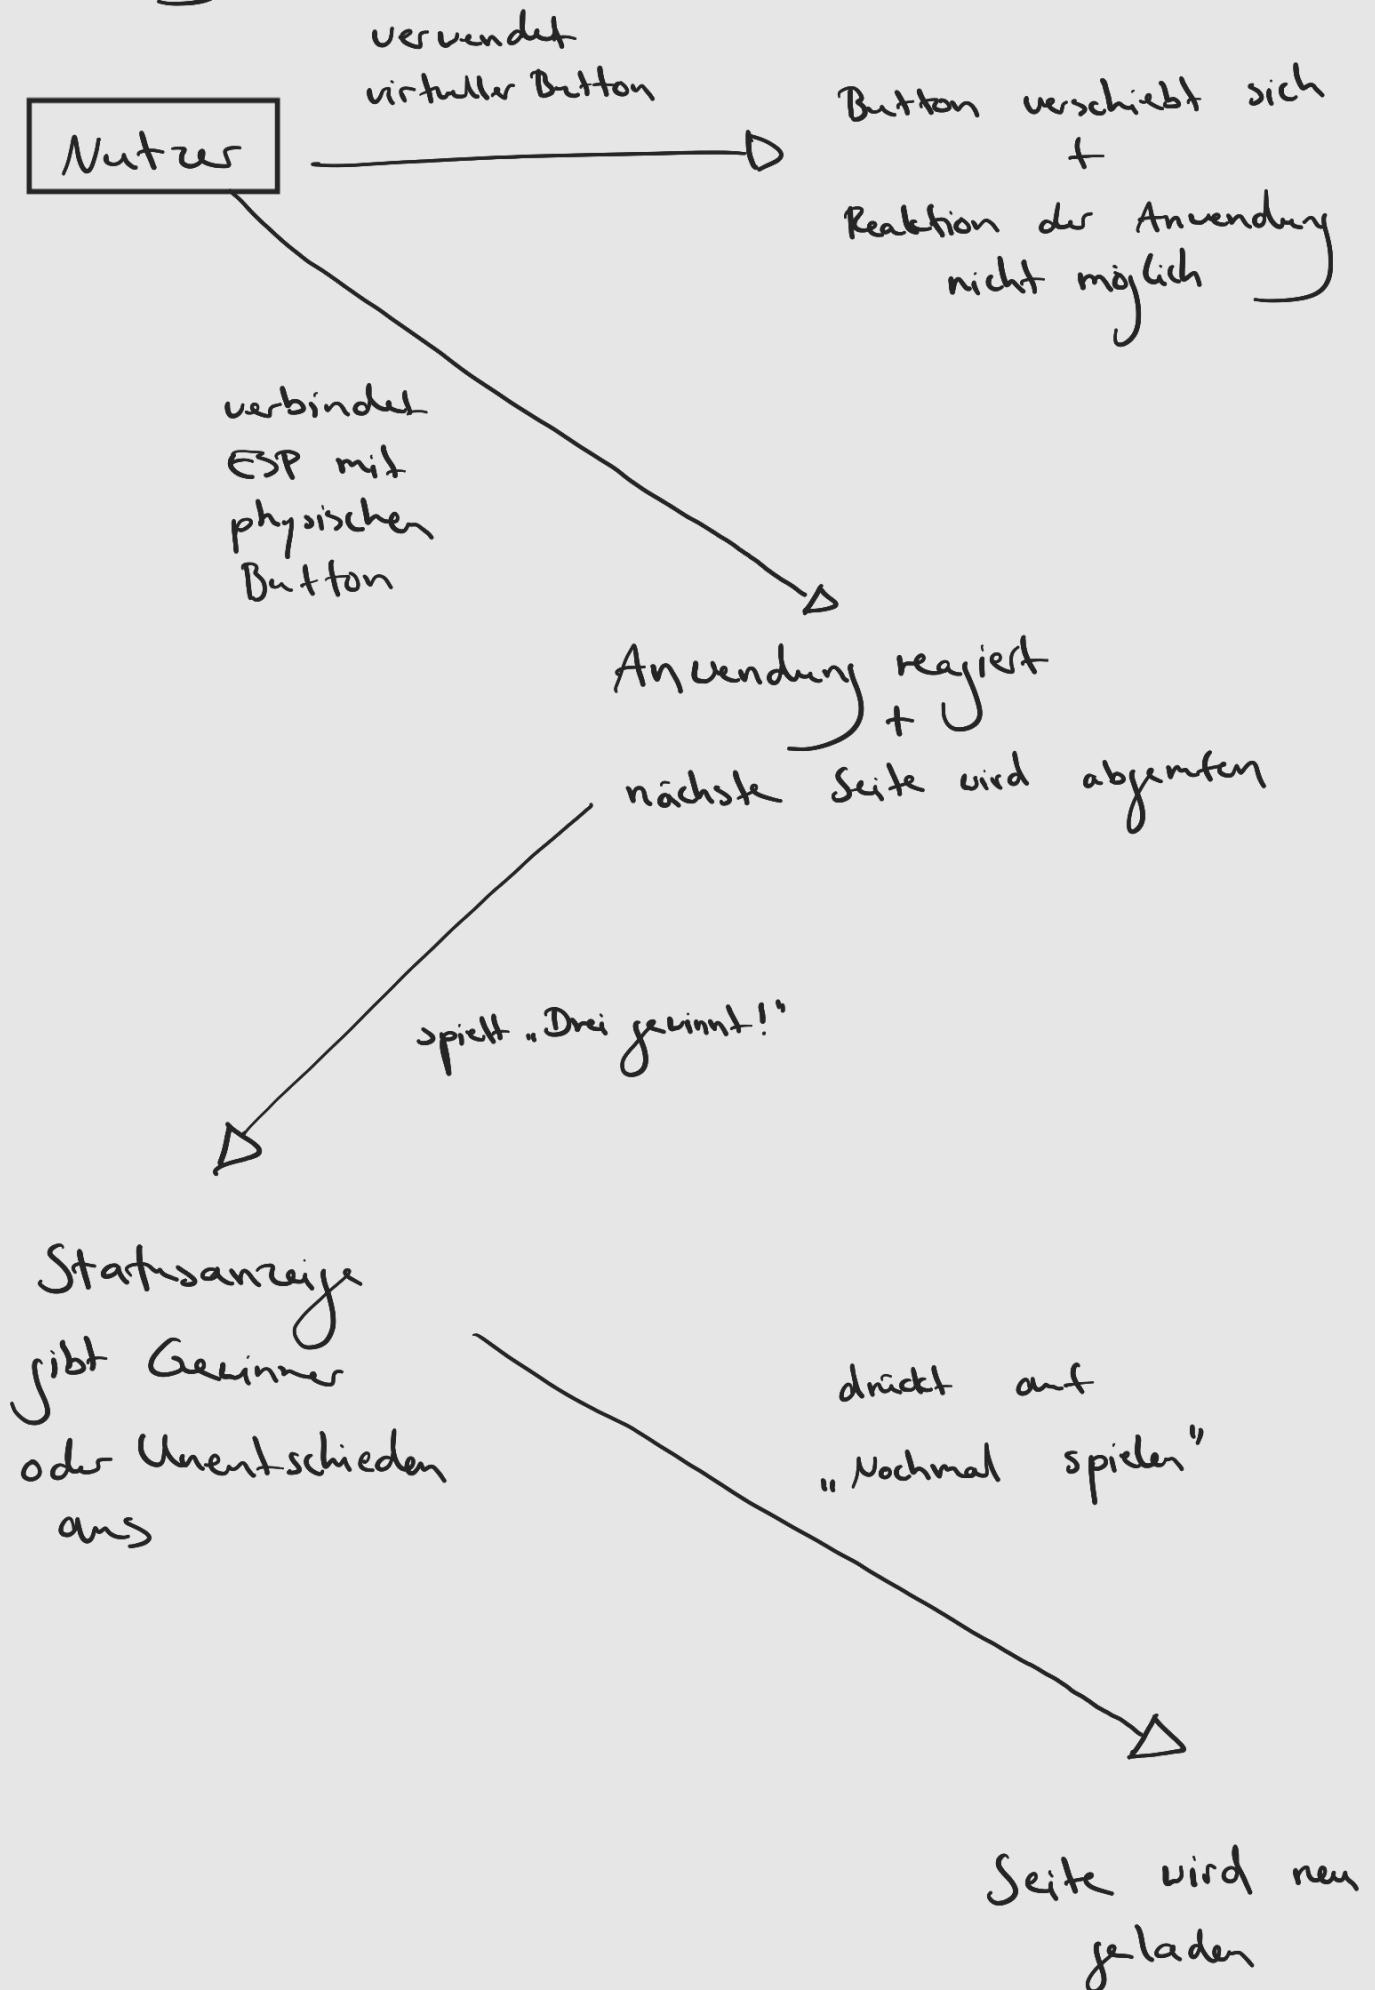 verwendet
virtueller Button
Nutzer
Button verschiebt sich
+
Reaktion der Anwendung
nicht möglich
verbindet
ESP mit
physischen
Button
Anwendung reagiert
+
nächste Seite wird abgerufen
spielt „Drei gewinnt!"
Statusanzeige
gibt Gewinner
oder Unentschieden
aus
drückt auf
„Nochmal spielen"
Seite wird neu
geladen